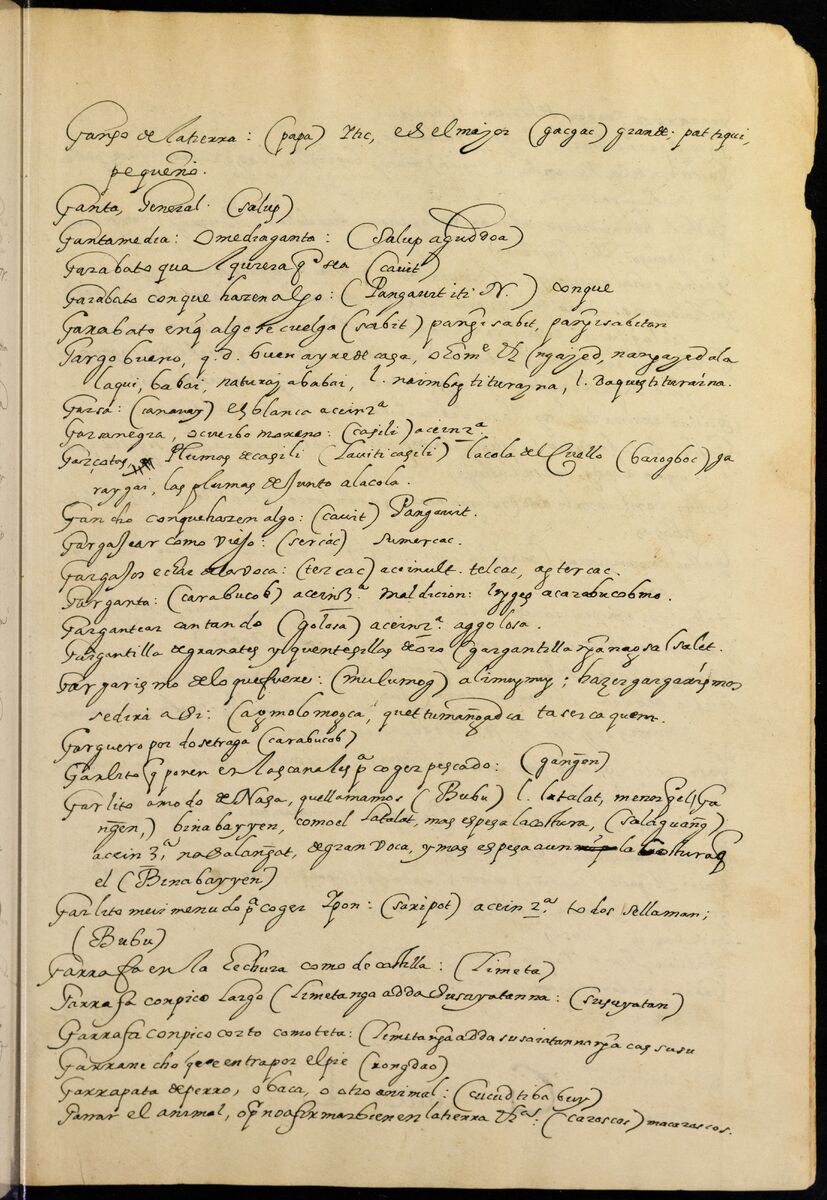 Ganso de la tierra: (papa) Itic, es el major (gacgac) grande. pattiqui,
pequeño.
Ganta, General. (salup)
Gantamedia: o mediaganta: (Salup aguddoa)
Garabato qualquiera q̃ sea (cauit)
Garabato conque hazen algo: (Pangauit iti N.) conque
Garabato enq̃ algo se cuelga (sabit) pang̃isabit, pang̃isabitan
Garbo bueno, q. d. buen ayre de casa, (ngayed, nangayed a la
laqui, babai, naturay a babai, l. naimbag ti turayna, l. Daques ti turaina.
Garsa: (canauay) es blanca acein 2ª
Garsanegra, o cuerbo moreno: (casili) acein 2ª
Garçotas, Plumas de casili (Lauiti casili) la cola del Cuello (barogboc) ga
raygai, las plumas de junto a la cola.
Gancho conque hazen algo: (cauit) Pang̃auit.
Gargajear como viejo: (sercac) sumercac.
Gargajos echar de la voca: (tercac) acein ult. telcac, agtercac.
Garganta: (carabucob) acein 3ª maldicion: acarabucobmo.
Gargantear cantando (golosa) acein 2ª aggolosa.
Gargantilla de granates y quentesillas de oro (gargantilla salet.
Gargarismo de lo que fuere: (mulumog) alimuymuy; hazer gargarismos
se dira a si: (agmolomogca, quet tumang̃adca ta sercaquem.
Garguero por do se traga (carabucob)
Garlito q̃ ponen en las canales pª coger pescado: (gang̃en)
Garlito a modo de Nasa, que llamamos (Bubu) l. latalat, menor q̃ el (Ga
ng̃en,) binabayyen, como el Latalat, mas espesa la costura, (salaguang̃)
acein 3ª nasalang̃at, de gran voca, y mas espesa aun la costura q̃
el (Binabayyen)
Garlito mui menudo pª coger Ipon: (saripot) acein 2ª todos se llaman;
(Bubu)
Garrafa en la hechura como de castilla: (Limeta)
Garrafa con pico Largo (Limetanga adda susuyatanna: (susuyatan)
Garrafa con pico corto como teta: (Limetang̃a adda susaiatanna ng̃a cas susu
Garrancho que entra por el pie (rongdao)
Garrapata de perro, o baca, o otro animal: (cucud ti babuy)
Garrar el animal, o p̃ no afirmar bien en la tierra: (caroscos) macaroscos.